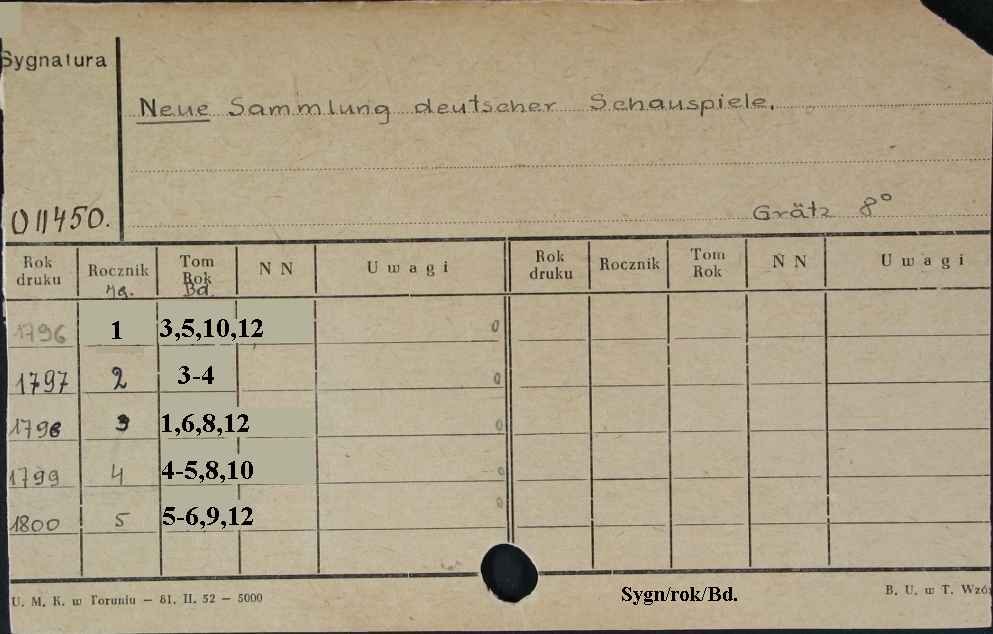 Sygnatura
Neue Sammlung deutscher Schauspiele.
011450.
Grätz 8°
Rok druku Rocznik Jg. Tom Rok Bd. N N Uwagi Rok druku Rocznik Tom Rok N N Uwagi
1796 1 3,5,10,12 0
1797 2 3-4 0
1798 3 1,6,8,12 0
1799 4 4-5,8,10 0
1800 5 5-6,9,12 0
Sygn/rok/Bd.
U. M. K. w Toruniu — 81. II. 52 — 5000
B. U. w T. Wzó